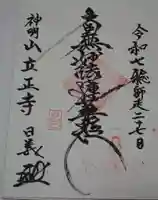 令和七龍師走二十七日
南無妙法蓮華経
神明山立正寺
日義